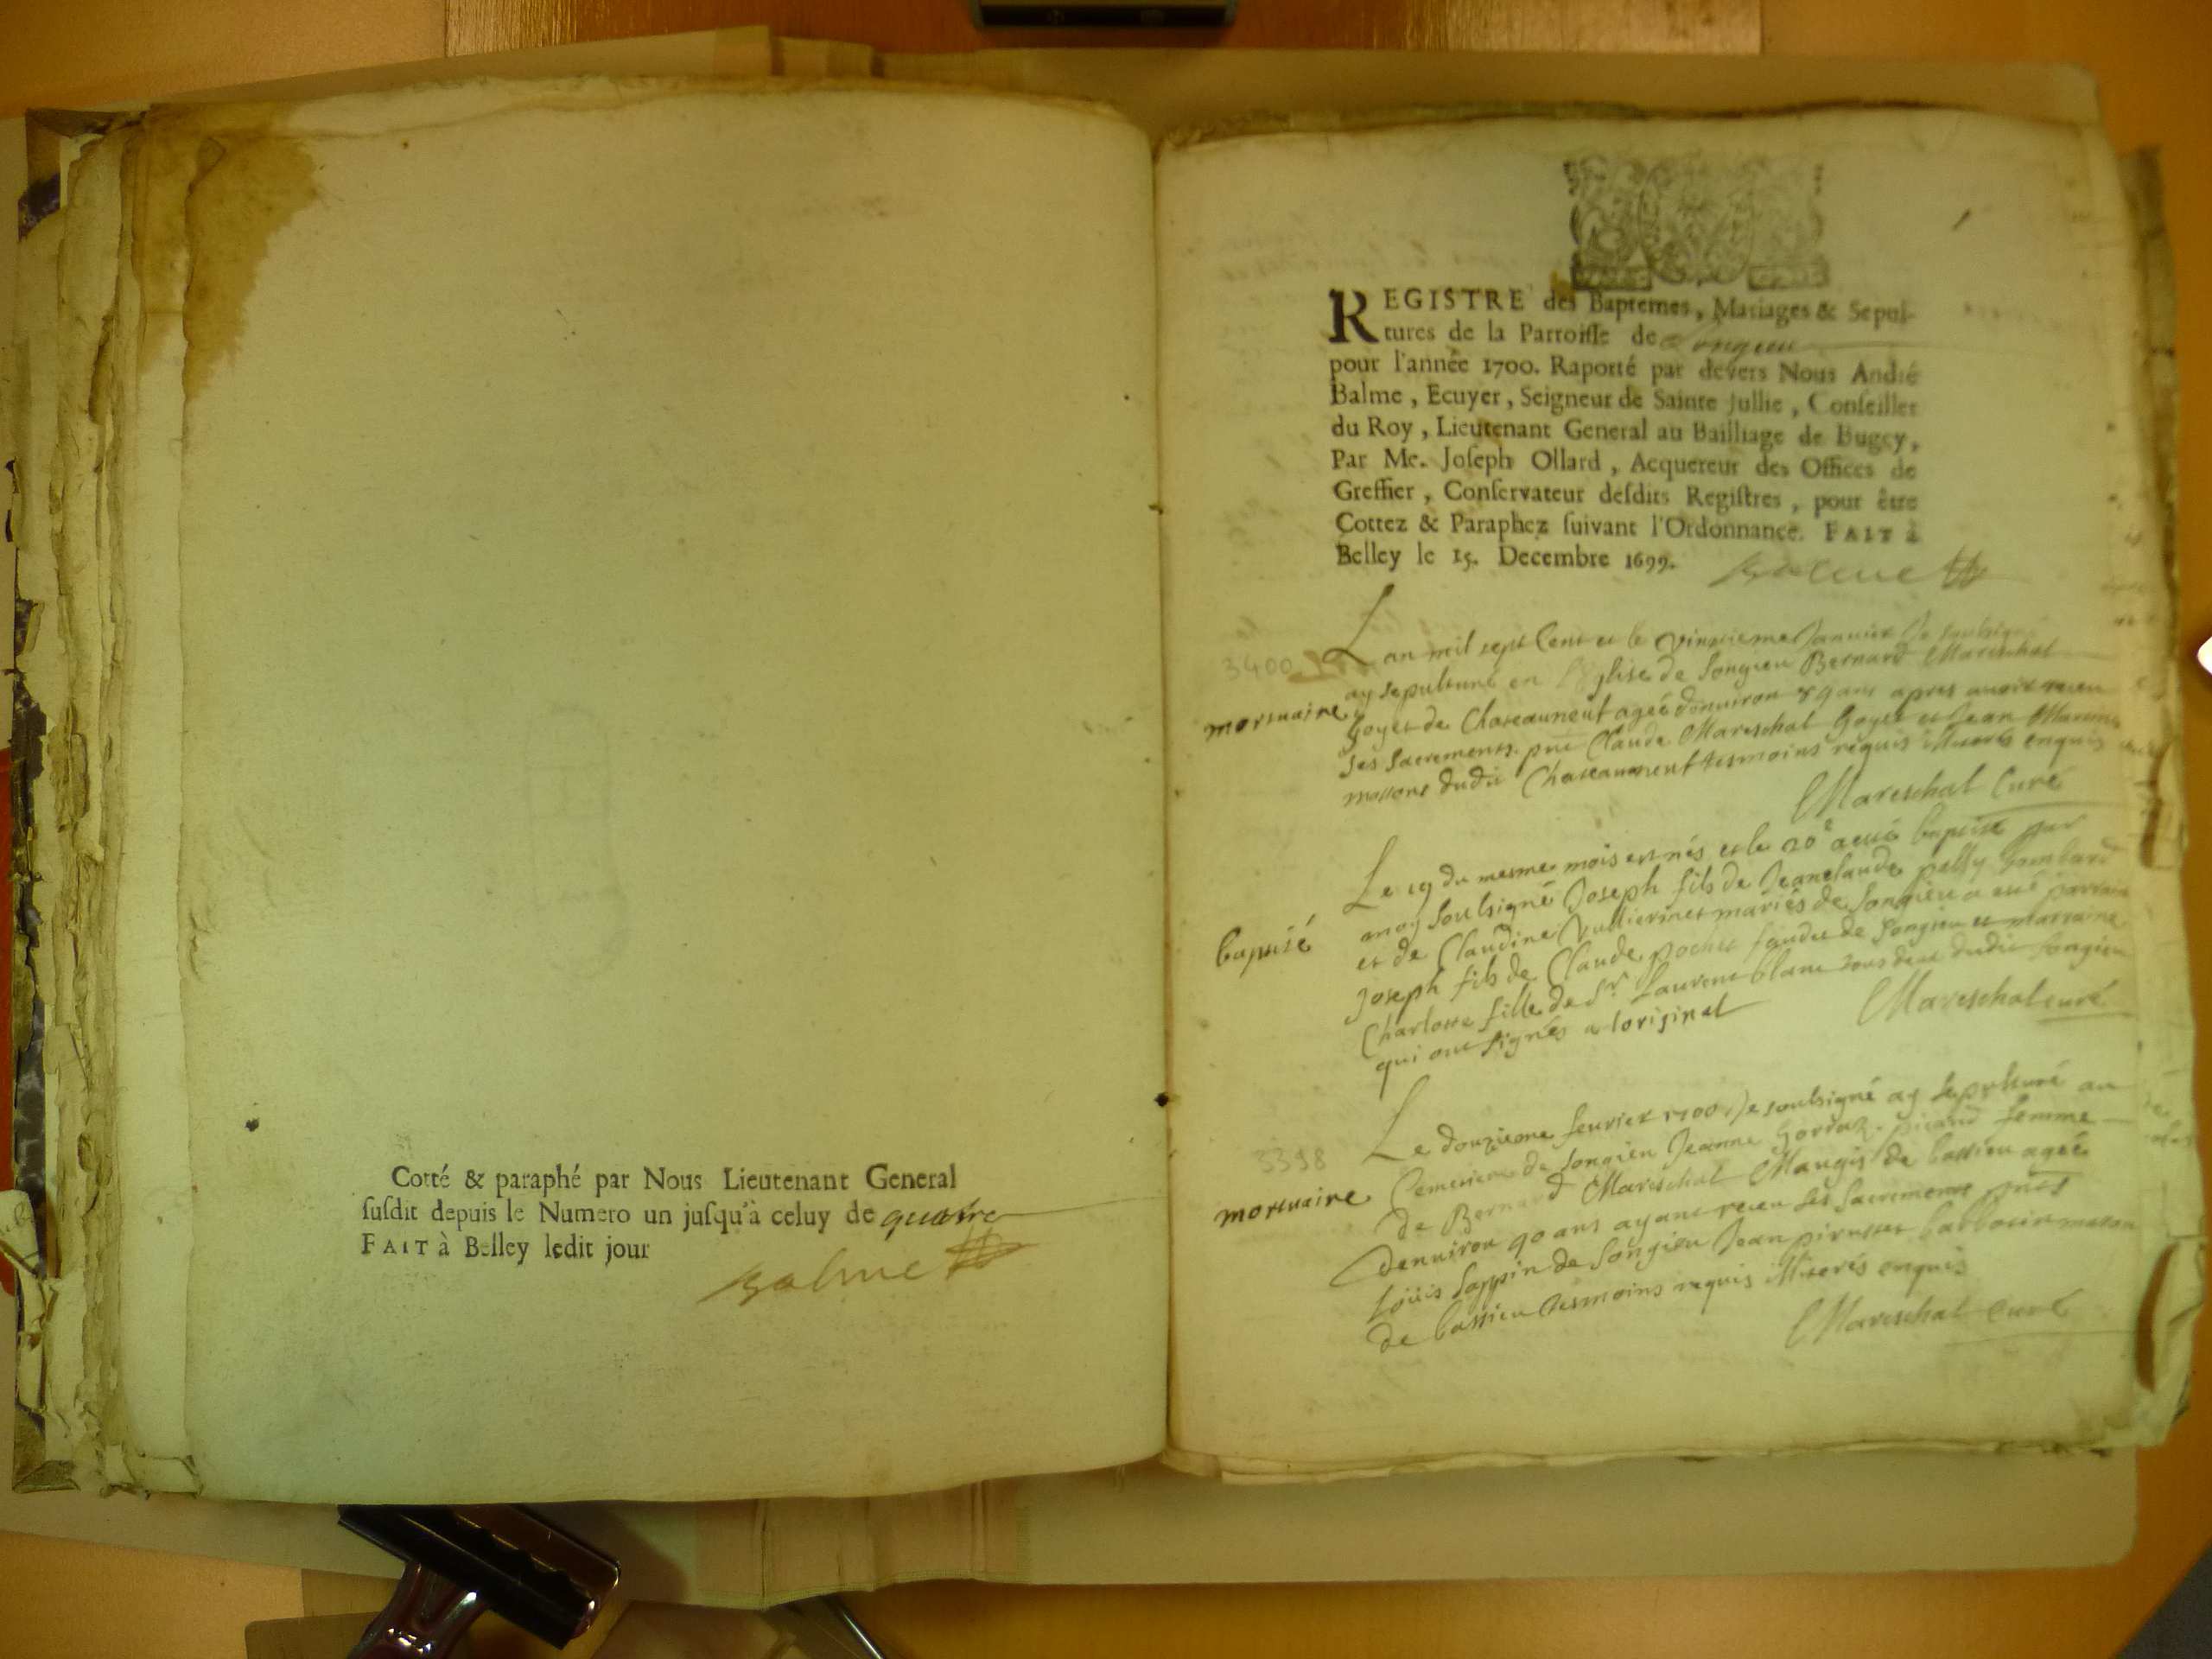 Cotté & paraphé par Nous Lieutenant General
susdit depuis le Numero un jusqu'à celuy de quatre
FAIT à Belley ledit jour
Balme
1
REGISTRE des Baptemes, Mariages & Sepul-
tures de la Parroisse de Songieu
pour l'année 1700. Raporté par devers Nous André
Balme, Ecuyer, Seigneur de Sainte Jullie, Conseiller
du Roy, Lieutenant General au Bailliage de Bugey,
Par Me. Joseph Ollard, Acquereur des Offices de
Greffier, Conservateur desdits Registres, pour être
Cottez & Paraphez suivant l'Ordonnance. FAIT à
Belley le 15. Decembre 1699.
Balme
3400
mortuaire
Lan mil sept Cent et le vintieme Janvier Je soubsigné
ay sepulturé en l'Eglise de Songieu Bernard Mareschal
goyet de Chateauneuf ageé denuiron ans apres auoir receu
ses sacrements. Claude Mareschal goyet et Jean
dudit Chateauneuf tesmoins requis enquis
Mareschal Curé
baptisé
Le 19 du mesme mois est nés et le 20e a eté baptisé par
moy soubsigné Joseph fils de Jeanclaude
et de Claudine mariés de Songieu a esté parrain
Joseph fils de Claude pochet de Songieu et marraine
Charlotte fille de Sr. Laurent blanc tous deux dudit Songieu
qui ont signés a loriginal
Mareschal curé
3398
mortuaire
Le douzieme feurier 1700 Je soubsigné ay sepulturé au
Cemetiere de Songieu Jeanne femme
de Bernard Mareschal Mangis de bassieu ageé
denuiron 90 ans ayant receu ses sacrements
Loüis Sappin de Songieu Jean
de bassieu tesmoins requis Miterés enquis
Mareschal Curé